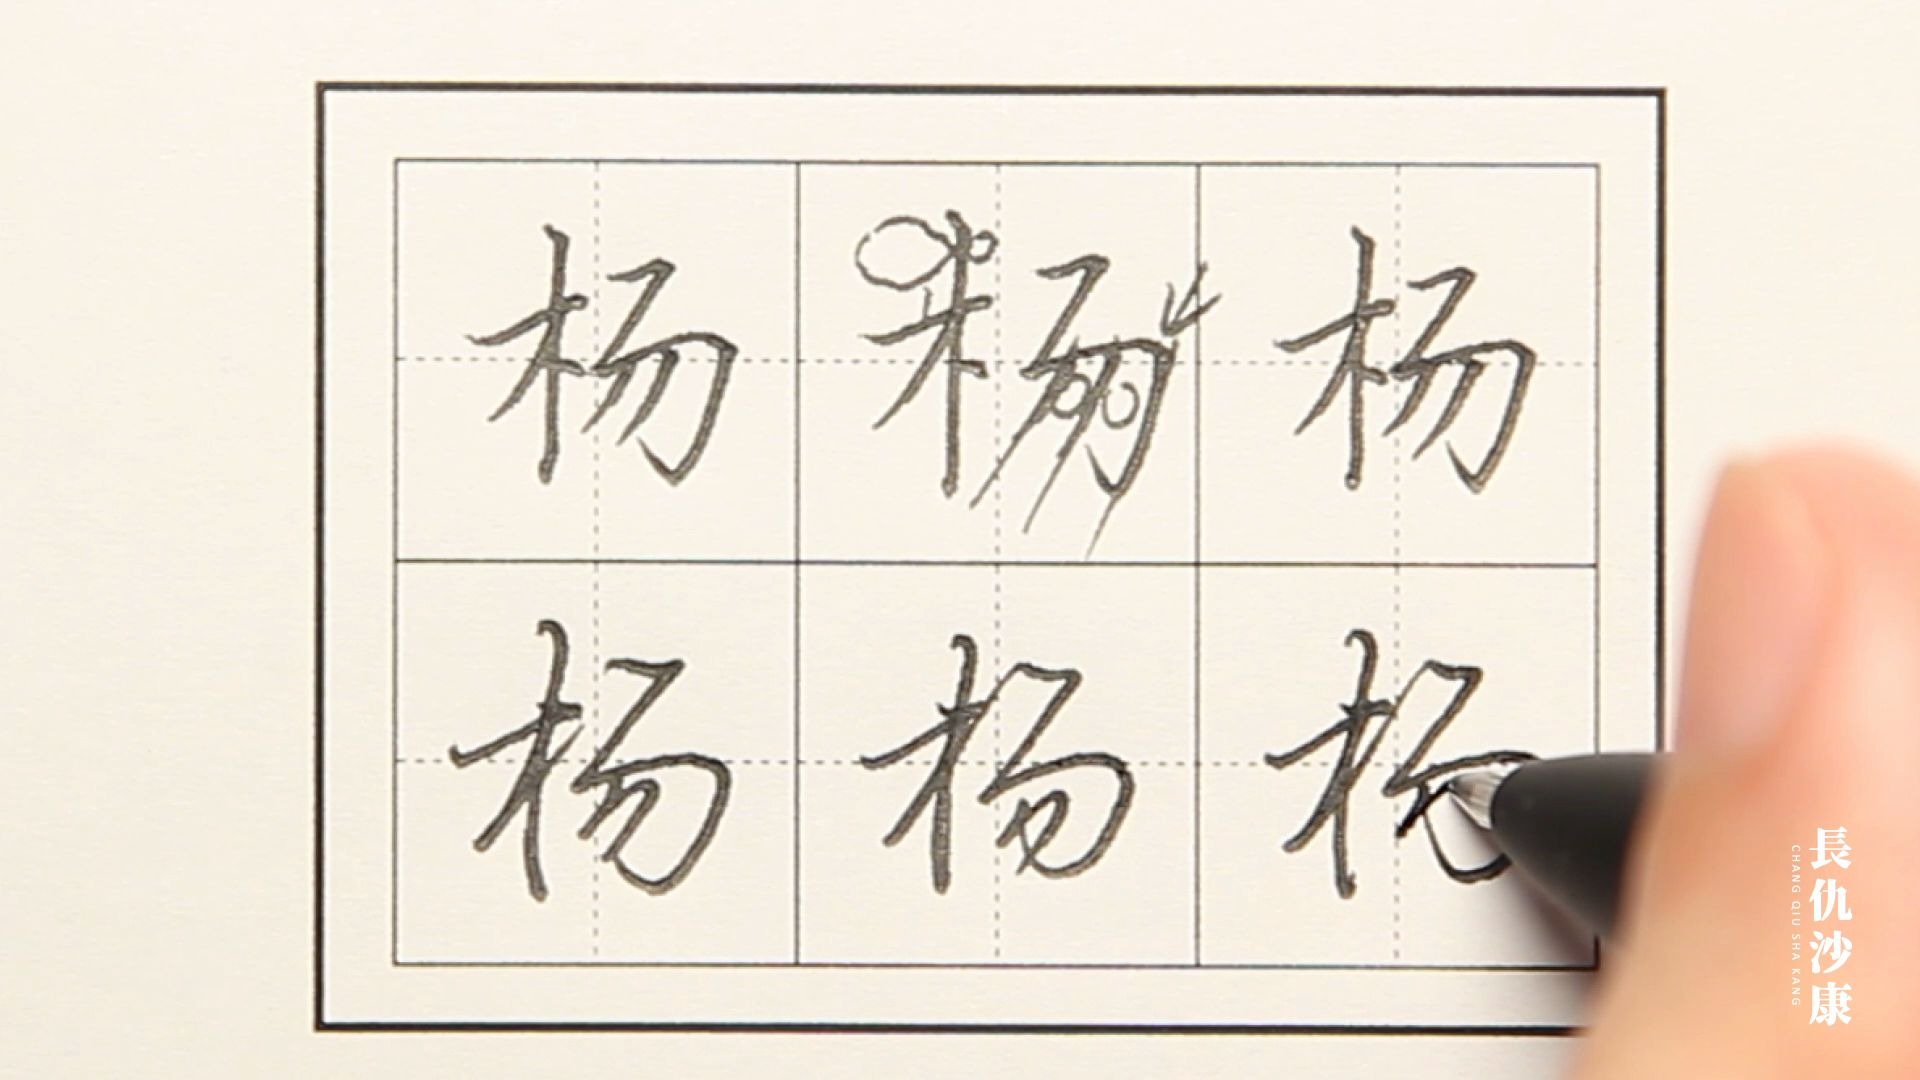 杨 杨 杨
杨 杨 杨
長仇沙康
CHANG QIU SHA KANG